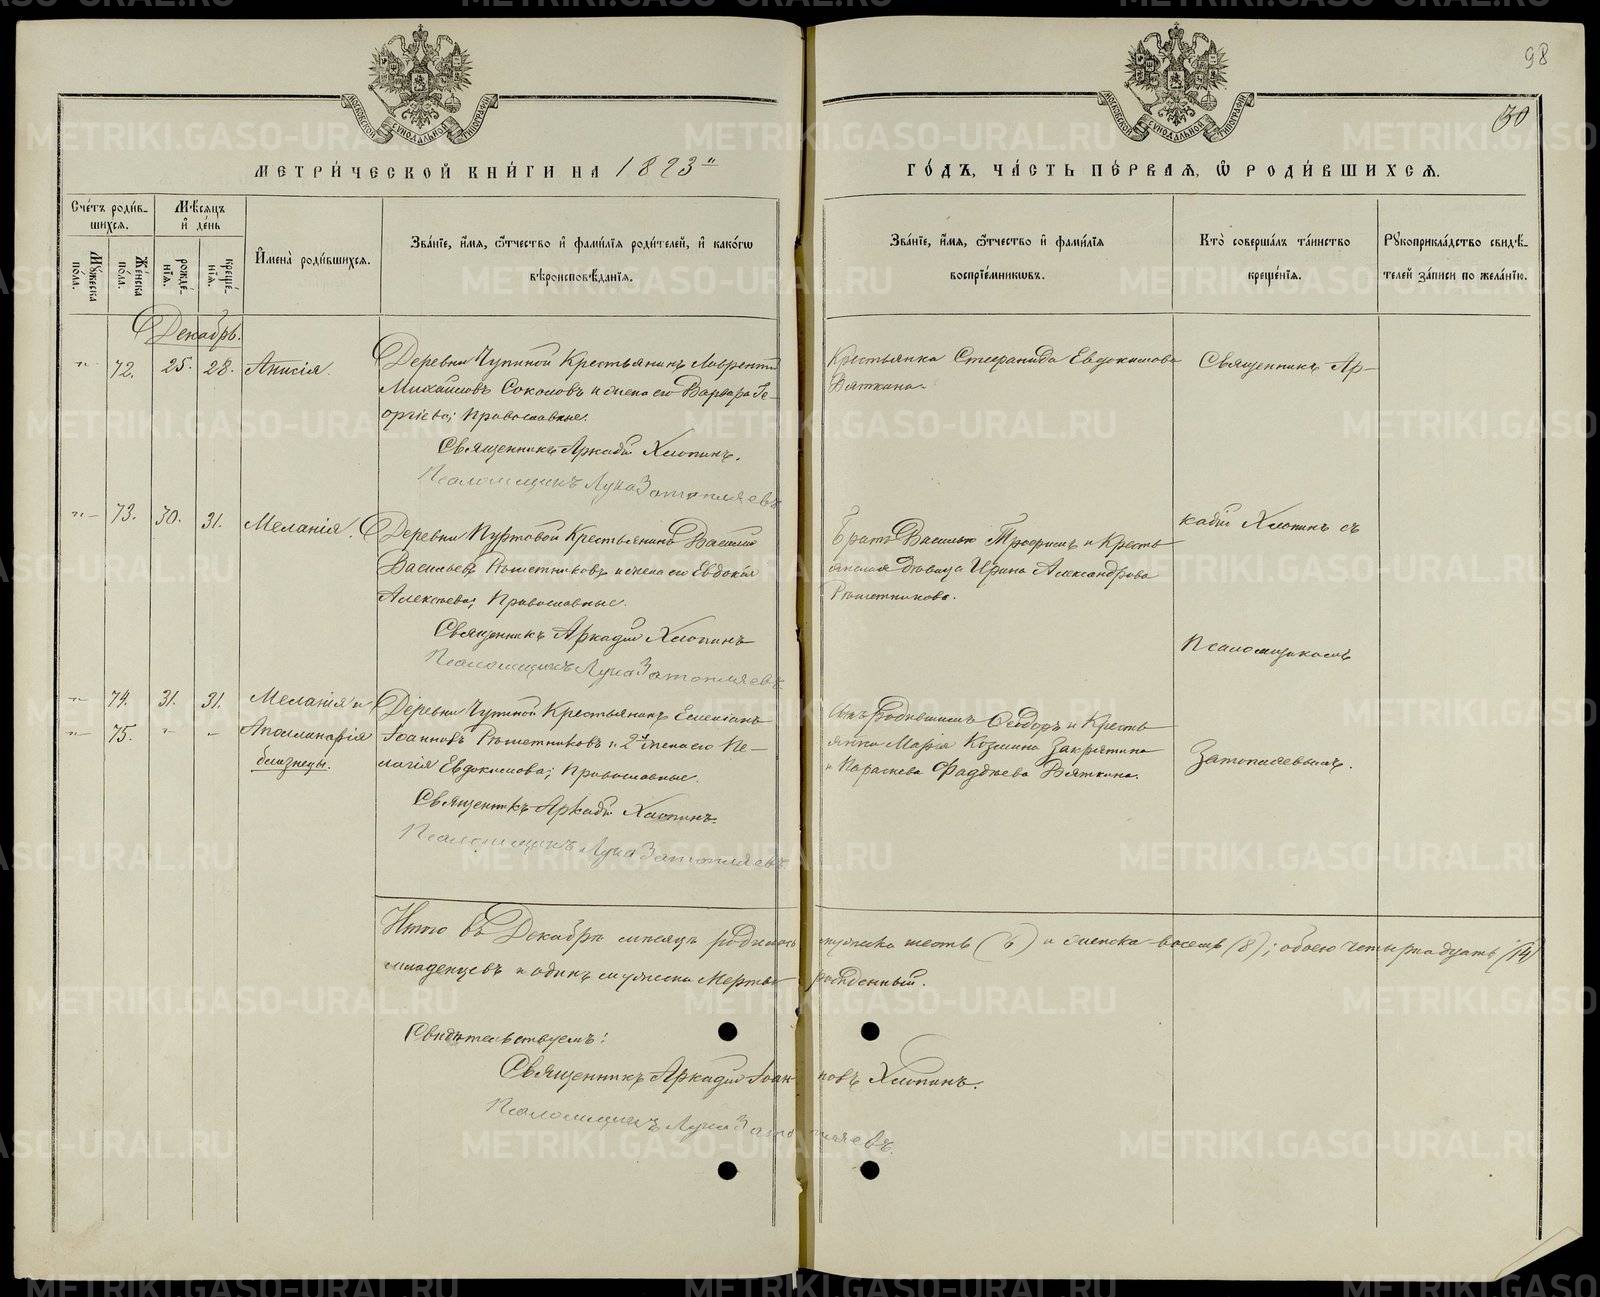 98
30
МОСКОВСКОЙ СѴНОДАЛЬНОЙ ТИПОГРАФІИ
МОСКОВСКОЙ СѴНОДАЛЬНОЙ ТИПОГРАФІИ
МЕТРИ́ЧЕСКОЙ КНИ́ГИ НА 1893й
ГО́ДЪ, ЧА́СТЬ ПЕ́РВАЯ, Ѡ РОДИ́ВШИХСЯ.
Сче́тъ роди́в-
шихся.
Мѣ́сяцъ
и҆ де́нь
Му́жеска по́ла.
Же́нска по́ла.
рожде́-
нїя.
креще́-
нїя.
И҆мена̀ роди́вшихся.
Зва́нїе, и҆́мя, ѻ҆́тчество и҆ фами́лїя роди́телей, и҆ како́гѡ
вѣроисповѣ́данїя.
Зва́нїе, и҆́мя, ѻ҆́тчество и҆ фами́лїя
воспрїе́мниковъ.
Кто̀ соверша́лъ та́инство
креще́нїя.
Рꙋкоприкла́дство свидѣ́-
телей за́писи по жела́нїю.
Декабрь.
"– 72. 25. 28. Анисія.
Деревни Чупиной Крестьянинъ Лаврентій
Михайловъ Соколовъ и жена его Варвара Ге-
оргіева; Православные.
Священникъ Аркадій Хлопинъ.
Псаломщикъ Лука Затопляевъ
Крестьянка Стефанида Евдокимова
Вяткина.
Священникъ Ар-
"– 73. 30. 31. Меланія.
Деревни Пуртовой Крестьянинъ Василій
Васильевъ Рѣшетниковъ и жена его Евдокія
Алексѣева; Православные.
Священникъ Аркадій Хлопинъ
Псаломщикъ Лука Затопляевъ
Братъ Василью Трофимъ и Кресть
янская дѣвица Ирина Александрова
Рѣшетникова.
кадій Хлопинъ съ
Псаломщикомъ
"– 74. 31. 31. Меланія и
"– 75. " – Аполлинарія
близнецы.
Деревни Чупиной Крестьянинъ Емеліанъ
Іоанновъ Рѣшетниковъ и 2я жена его Пе-
лагія Евдокимова; Православные.
Священникъ Аркадій Хлопинъ.
Псаломщикъ Лука Затопляевъ
Сынъ родившимъ Ѳеодоръ и Кресть
янка Марія Козмина Закрятина
и Параскева Фаддѣева Вяткина.
Затопляевымъ.
Итого въ Декабрѣ мѣсяцѣ родилось мужска шесть (6) и женска восемь (8); обоего четырнадцать (14)
младенцевъ и одинъ мужеска мертворожденный.
Свидѣтельствуемъ:
Священникъ Аркадій Іоанновъ Хлопинъ.
Псаломщикъ Лука Затопляевъ.
METRIKI.GASO-URAL.RU